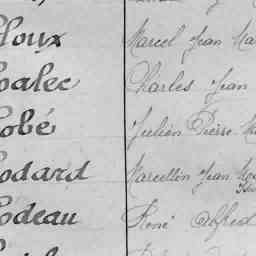 loux Marcel Jean Ma
alec Charles Jean
obé Julien Pierre M
odard Marcellin Jean
odeau René Alfred